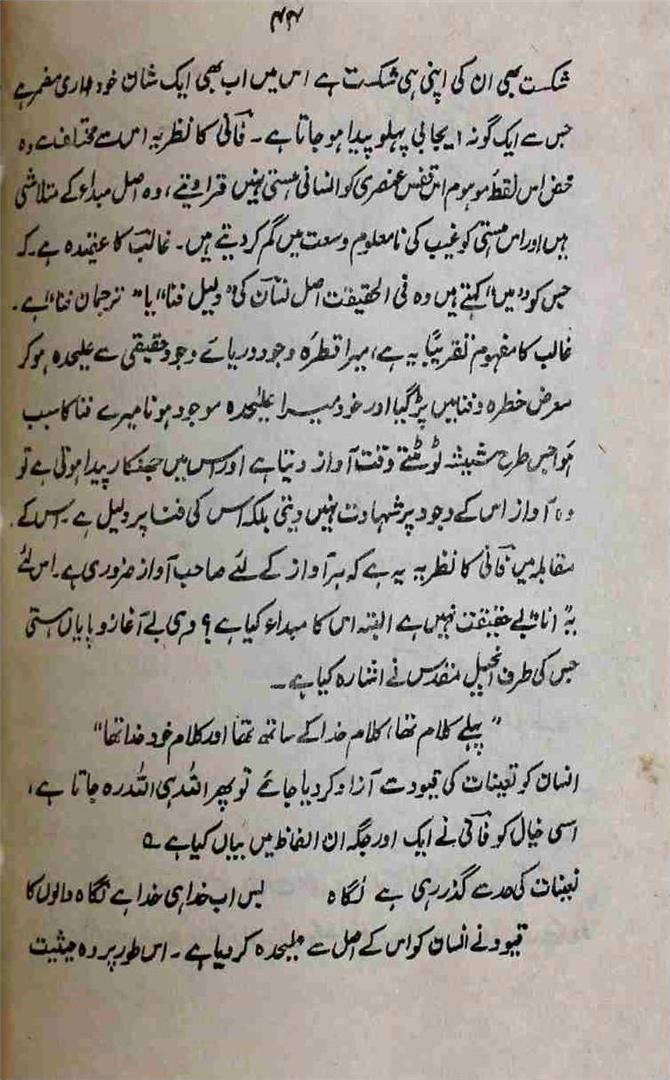 ۴۴
شکست بھی ان کی اپنی ہی شکست ہے اس میں اب بھی ایک شان خودداری مضمر ہے
جس سے ایک گونہ ایجابی پہلو پیدا ہو جاتا ہے۔ فانی کا نظریہ اس سے مختلف ہے وہ
محض اس نقطہ موہوم اس قفس عنصری کو انسانی ہستی نہیں قرار دیتے، وہ اصل مبداء کے متلاشی
ہیں اور اس ہستی کو غیب کی نامعلوم وسعت میں گم کر دیتے ہیں۔ غالب کا عقیدہ ہے۔ کہ
جس کو "میں" کہتے ہیں وہ فی الحقیقت اصل نشان کی "دلیل فنا" یا "ترجمان فنا" ہے۔
غالب کا مفہوم تقریباً یہ ہے، میرا قطرہ وجود دریائے وجود حقیقی سے علیحدہ ہو کر
معرض خطرہ و فنا میں پڑ گیا اور خود میرا علیحدہ موجود ہونا میرے فنا کا سبب
ہوا جس طرح شیشہ ٹوٹتے وقت آواز دیتا ہے اور اس میں جھنکار پیدا ہوتی ہے تو
وہ آواز اس کے وجود پر شہادت نہیں دیتی بلکہ اس کی فنا پر دلیل ہے۔ اس کے
مقابلہ میں فانی کا نظریہ یہ ہے کہ ہر آواز کے لئے صاحب آواز ضروری ہے۔ اس لئے
یہ انا بے حقیقت نہیں ہے البتہ اس کا مبداء کیا ہے؟ وہی بے آغاز و پایاں ہستی
جس کی طرف انجیل مقدس نے اشارہ کیا ہے۔
"پہلے کلام تھا، کلام خدا کے ساتھ تھا اور کلام خود خدا تھا"
انسان کو تعینات کی قیود سے آزاد کر دیا جائے تو پھر اللہ ہی اللہ رہ جاتا ہے،
اسی خیال کو فانی نے ایک اور جگہ ان الفاظ میں بیاں کیا ہے ؎
تعینات کی حد سے گذر رہی ہے نگاہ بس اب خدا ہی خدا ہے نگاہ والوں کا
قیود نے انسان کو اس کے اصل سے علیحدہ کر دیا ہے۔ اس طور پر وہ حیثیت